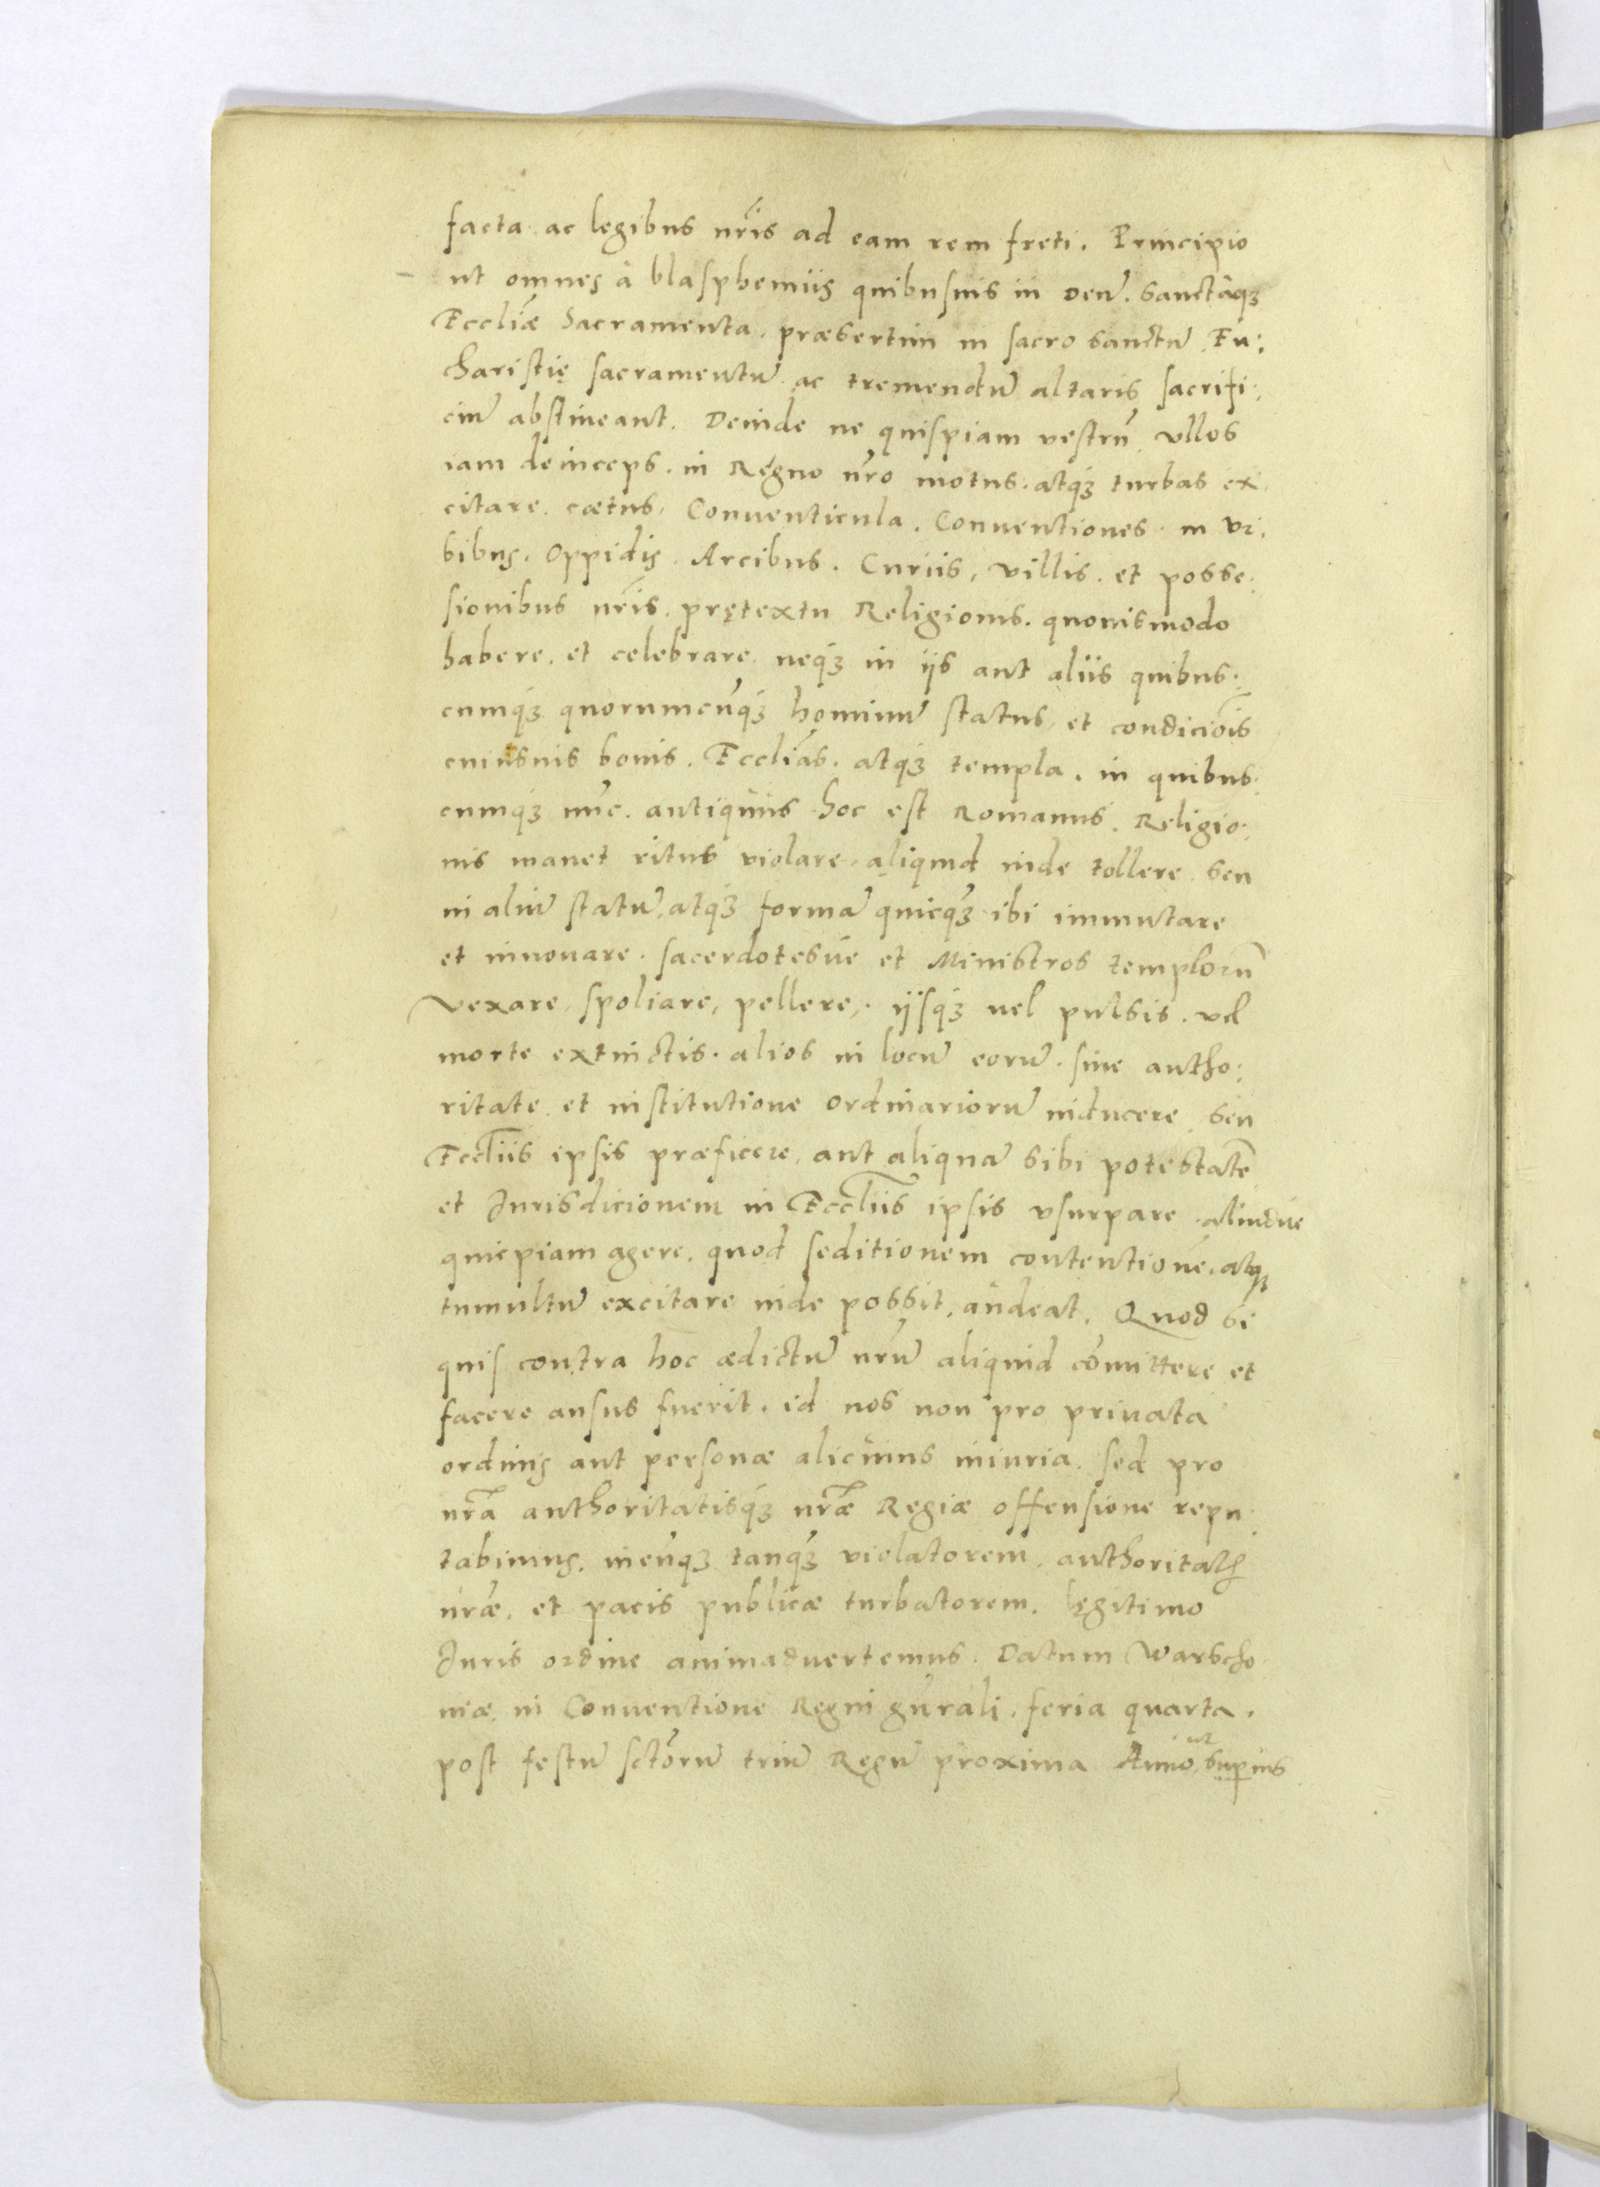 facta ac legibus nr̃is ad eam rem freti. Principio
ut omnes à blasphemiis quibusuis in Deũ. Sanctaq́ꝫ
Eccliæ̃ Sacramenta. præsertim in sacro sanctũ Eu:
charistię sacramentũ ac tremendũ altaris sacrifi:
ciũ abstineant. Deinde ne quispiam vestrũ vllos
iam deinceps. in Regno nr̃o motus. atq́ꝫ turbas ex
citare. cætus, Conuenticula. Conuentiones. in vr:
bibus. Oppidis. Arcibus. Curiis, villis. et posse:
sionibus nr̃is. prętextu Religionis. quouismodo
habere. et celebrare. neq́ꝫ in ijs aut aliis quibus:
cumq́ꝫ quorumcũq́ꝫ hominũ status et condiciõis
cuiusuis bonis. Ecclias̃. atq́ꝫ templa. in quibus:
cumq́ꝫ nũc. antiquus hoc est Romanus. Religio:
nis manet ritus violare. aliquid inde tollere. Seu
in aliũ statũ, atq́ꝫ formã quicq́ꝫ ibi immutare
et innouare. sacerdotesúe et Ministros templorũ
vexare, spoliare, pellere,. ijsq́ꝫ uel pulsis. vel
morte extinctis. alios in locũ eorũ. sine autho:
ritate et institutione ordinariorũ inducere. Seu
Eccliis̃ ipsis præficere, aut aliquã sibi potestatẽ
et Jurisdicionem in Eccliis̃ ipsis vsurpare. aliudue
quicpiam agere. quod seditionem contentionẽ. atq́ꝫ
tumultũ excitare inde possit, audeat. Quod si
quis contra hoc ædictũ nr̃ũ aliquid cõmittere et
facere ausus fuerit. id nos non pro priuata
ordinis aut personæ alicuius iniuria. sed pro
nr̃a authoritatisq́ꝫ nr̃æ Regiæ offensione repu:
tabimus. ineũq́ꝫ tanq́ꝫ violatorem. authoritatis
nr̃æ. et pacis publicæ turbatorem. legitimo
Juris ordine animaduertemus. Datum Warscho
uiæ. in Conuentione Regni gñrali. feria quarta.
post festũ sctõrũ triũ Regũ proxima Anno ut supius